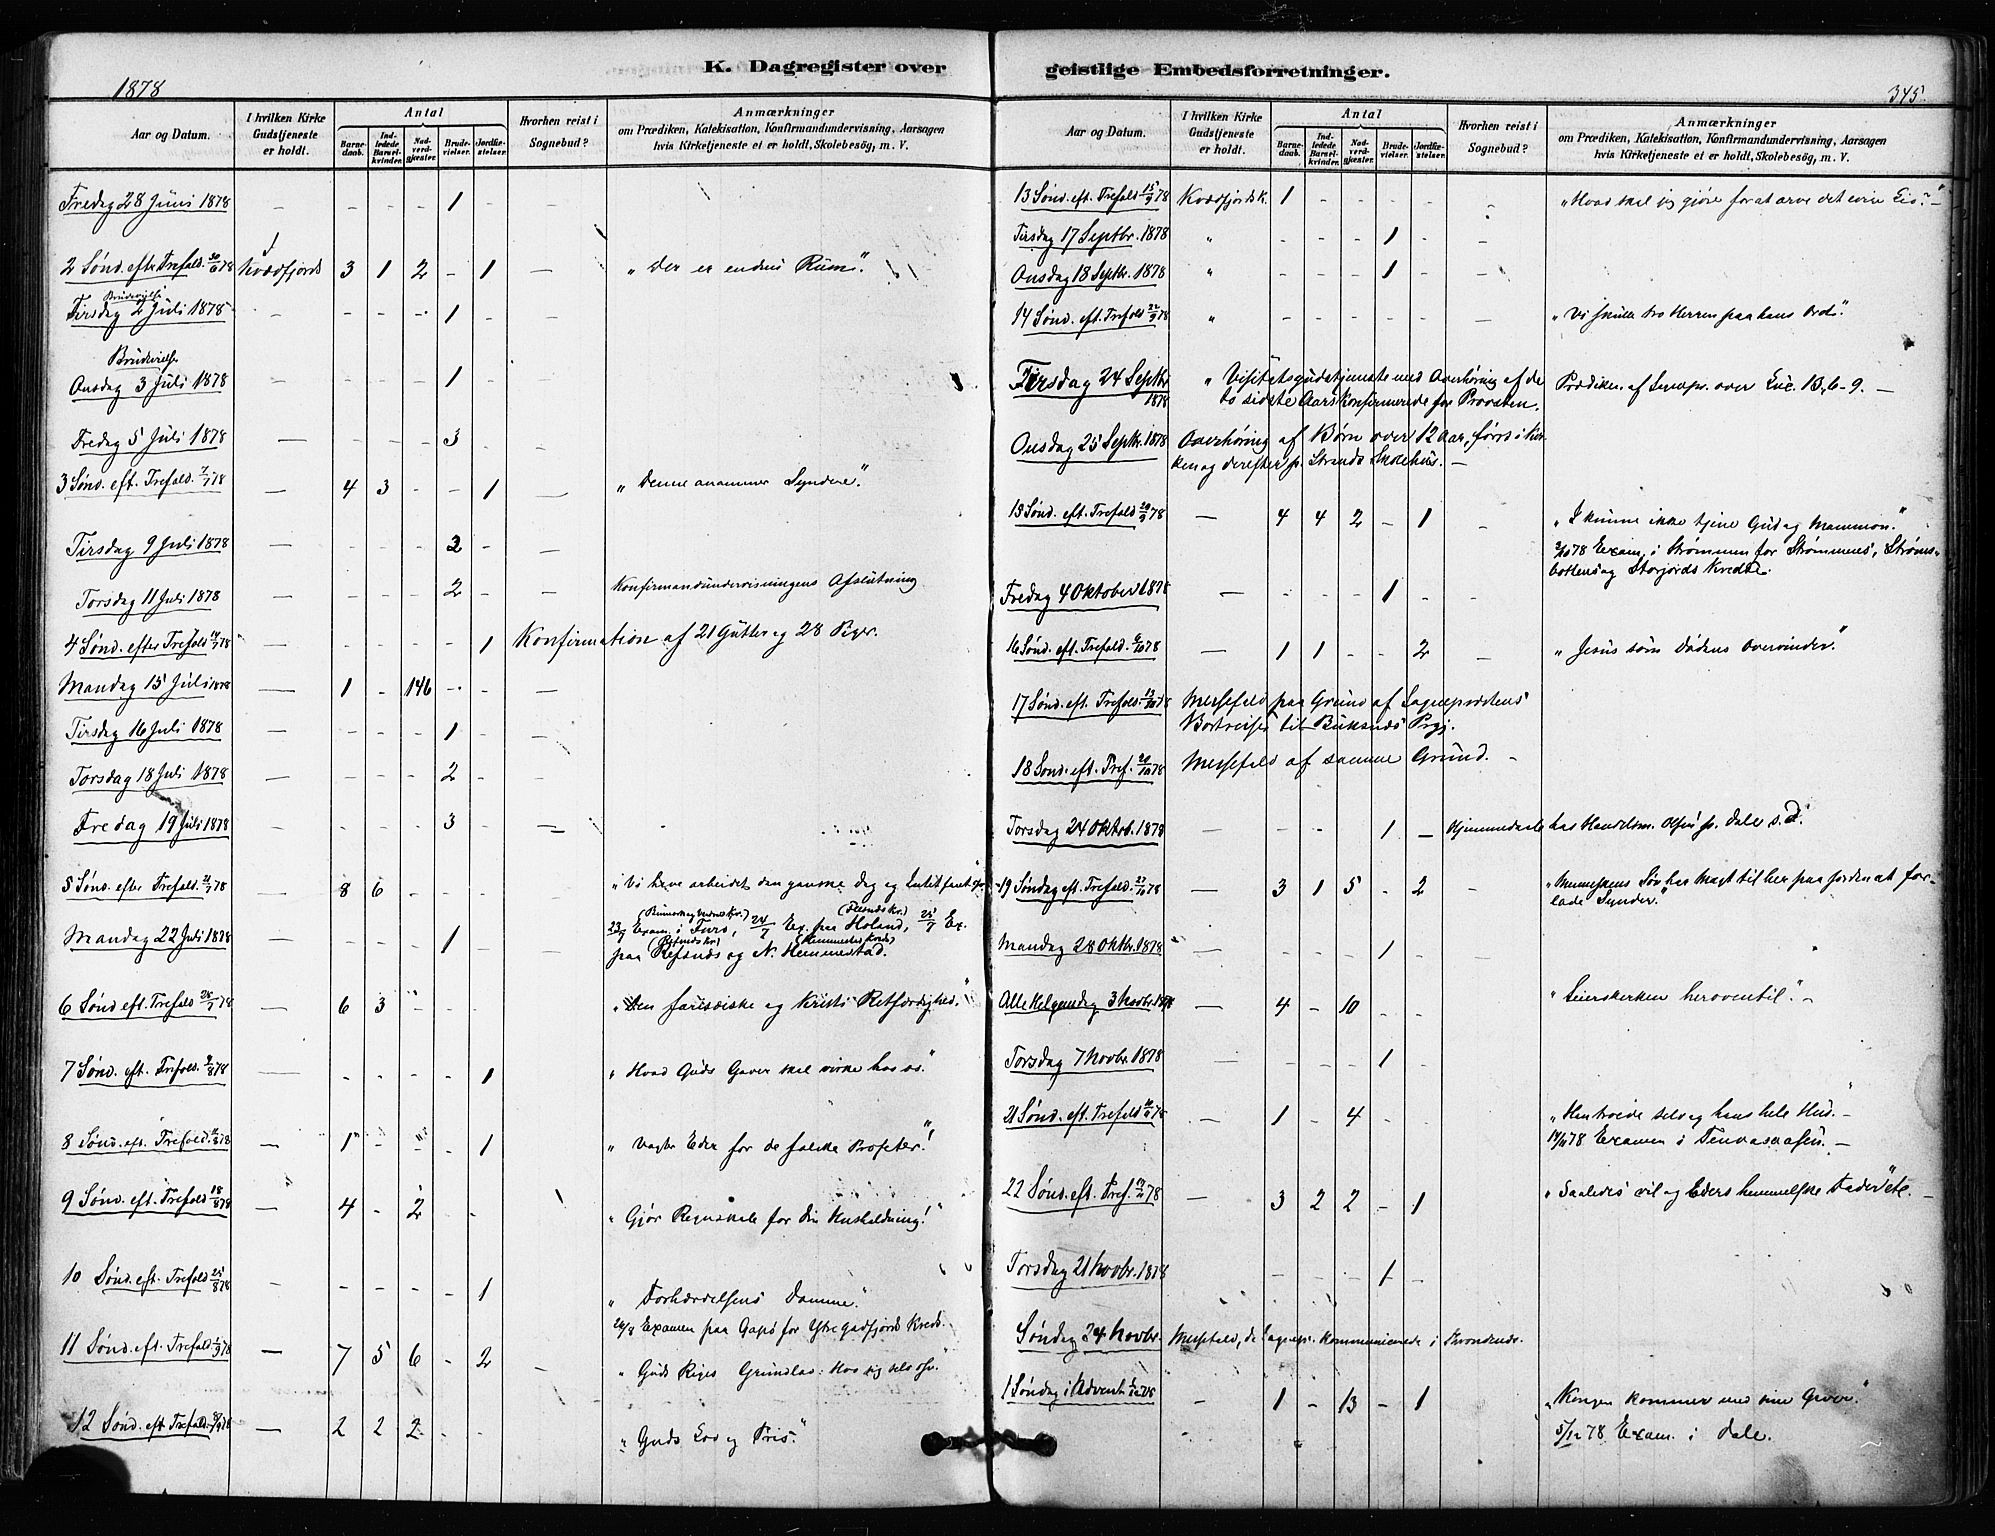 K. Dagregister over geistlige Embedsforretninger.
1878
345.
Aar og Datum.
I hvilken Kirke Gudstjeneste er holdt.
Antal
Barnedaab.
Indledede Barselkvinder.
Nadverdgjæster.
Brudevielser.
Jordfæstelser.
Hvorhen reist i Sognebud?
Anmærkninger
om Prædiken, Katekisation, Konfirmandundervisning, Aarsagen
hvis Kirketjeneste et er holdt, Skolebesög, m. V.
Fredag 28 Juni 1878 - - - - 1 - -
2 Sønd. efter Trefald. 30/6 78 Kvædfjords 3 1 2 - 1 - "Der er endnu Rum".
Brudevielse
Tirsdag 2 Juli 1878 - - - - 1 - -
Brudevielse
Onsdag 3 Juli 1878 - - - - 1 - -
Fredag 5 Juli 1878 - - - - 3 - -
3 Sønd. eft. Trefald. 7/7 78 - 4 3 - - 1 - "Denne anammer Syndere".
Tirsdag 9 Juli 1878 - - - - 2 - -
Torsdag 11 Juli 1878 - - - - 2 - - Konfirmandundervisningens Afslutning
4 Sønd. efter Trefald. 14/7 78 - - - - - 1 Konfirmation af 21 Gutter og 28 Piger.
Mandag 15 Juli 1878 - 1 - 146 - - -
Tirsdag 16 Juli 1878 - - - - 1 - -
Torsdag 18 Juli 1878 - - - - 2 - -
Fredag 19 Juli 1878 - - - - 3 - -
5 Sønd. efter Trefald. 21/7 78 - 8 6 - - - - "Vi have arbeidet den ganske Dag og Intet faaet"
Mandag 22 Juli 1878 - - - - 1 - - 23/7 Exam. i 24/7 Ex. paa Holand, 25/7 Ex.
paa Refsnes og N. Hemmestad.
6 Sønd. eft. Trefald. 28/7 78 - 6 3 - - - "Den farisæiske og Kristi Retfærdighed."
7 Sønd. eft. Trefold. 4/8 78 - - - - - 1 "Hvad Guds Gaver skal virke hos os."
8 Sønd. eft. Trefold. 11/8 78 - 1 - - - 1 "Vogter Eder for de falske Profeter!"
9 Sønd. eft. Trefold 18/8 78 - 4 - 2 - - "Gjør Regnskab for din Husholdning!"
10 Sønd. eft. Trefold 25/8 78 - - - - - 1 "Forhærdelsens Domme."
Examen paa Gapø for Ytre Godfjords Kreds.
11 Sønd. eft. Trefald. 1/9 78 - 7 5 6 - 2 - "Guds Riges Grundlov: Hvo sig selv osv."
12 Sønd. eft. Trefald. 8/9 78 - 2 2 2 - - "Guds Lov og Pris."
Aar og Datum.
I hvilken Kirke Gudstjeneste er holdt.
Antal
Barnedaab.
Indledede Barselkvinder.
Nadverdgjæster.
Brudevielser.
Jordfæstelser.
Hvorhen reist i Sognebud?
Anmærkninger
om Prædiken, Katekisation, Konfirmandundervisning, Aarsagen
hvis Kirketjeneste et er holdt, Skolebesög, m. V.
13 Sønd. eft. Trefald 15/9 78 Kvædfjords K. 1 - - - - - "Hvad skal jeg gjøre for at arve det evige Liv?" -
Tirsdag 17 Septbr. 1878 " - - - 1 - -
Onsdag 18 Septbr. 1878 " - - - 1 - -
14 Sønd. eft. Trefold 22/9 78 " - - - - - - "Vi skulle tro Herren paa hans Ord."
Tirsdag 24 Septbr 1878 " Visitatsgudstjeneste med Overhøring af de Prædiken af Sognepr. over Luc. 13, 6-9. -
to sidste Aars Konfirmerede for Provsten.
Onsdag 25 Septbr. 1878 Overhøring af Børn over 12 Aar, først i Kir-
ken og derefter p. Strands Skolehus. -
15 Sønd. eft. Trefald 29/9 78 - 4 4 2 - 1 - "I kunne ikke tjene Gud og Mammon."
3/10 78 Exam. i Strømmen for Strømmens, Strøms-
bottens og Storjords Kredse.
Fredag 4 Oktober 1878 - - - - 1 - -
16 Sønd. eft. Trefald. 6/10 78 - 1 1 - - 2 - "Jesus som Dødens Overvinder."
17 Sønd. eft. Trefald. 13/10 78 Messefald paa Grund af Sognepræstens
Bortreise til Buksnæs Prgj.
18 Sønd. eft. Tref. 20/10 78 Messefald af samme Grund. -
Torsdag 24 Oktbr. 1878 - - - - 1 - Hjemmedaab hos Handelsm. Olsen p. Dale s. D.
19 Søndag eft. Trefald. 27/10 78 - 3 1 5 - 2 - "Menneskens Søn har Magt til her paa Jorden at for-
lade Synder."
Mandag 28 Oktbr. 1878 - - - - 1 -
Alle Helgensdag 3 Novbr. 1878 - 4 - 10 - - "Seierskirken heroventil." -
Torsdag 7 Novbr. 1878 - - - - 1 -
21 Sønd. eft. Trefald 10/11 78 - 1 - 4 - - "Han troede selv og hans hele Hus." -
14/11 78 Examen i
22 Sønd. eft. Tref. 17/11 78 - 3 2 2 - 1 "Saaledes vil og Eders himmelske Fader" etc. -
Torsdag 21 Novbr. 1878 - - - 1 -
Søndag 24 Novbr. Messefald, da Sognepr. kommunicerede i Throndenæs.
1 Søndag i Advent 1/12 78 - 1 - 13 - 1 "Kongen kommer med sine Gaver."
5/12 78 Exam. i Dale.